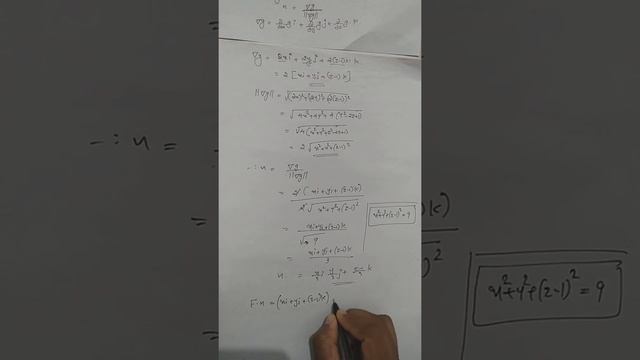 n = ∇g / ||∇g||
∇g = ∂/∂x g i + ∂/∂y g j + ∂/∂z g k
∇g = 2x i + 2y j + 2(z-1) k
= 2 [xi + yj + (z-1) k]
||∇g|| = √(2x)²+(2y)²+(2(z-1))²
= √4x²+4y²+4(z²-2z+1)
= √4(x²+y²+z²-2z+1)
= 2 √x²+y²+(z-1)²
∴ n = ∇g / ||∇g||
= 2(xi + yj + (z-1) k) / 2√x²+y²+(z-1)²
x²+y²+(z-1)² = 9
= xi + yj + (z-1) k / √9
= xi + yj + (z-1) k / 3
n = x/3 i + y/3 j + z-1/3 k
F·n = (xi + yj + (z-1) k)
∴ n =
x²+y²+(z-1)² = 9